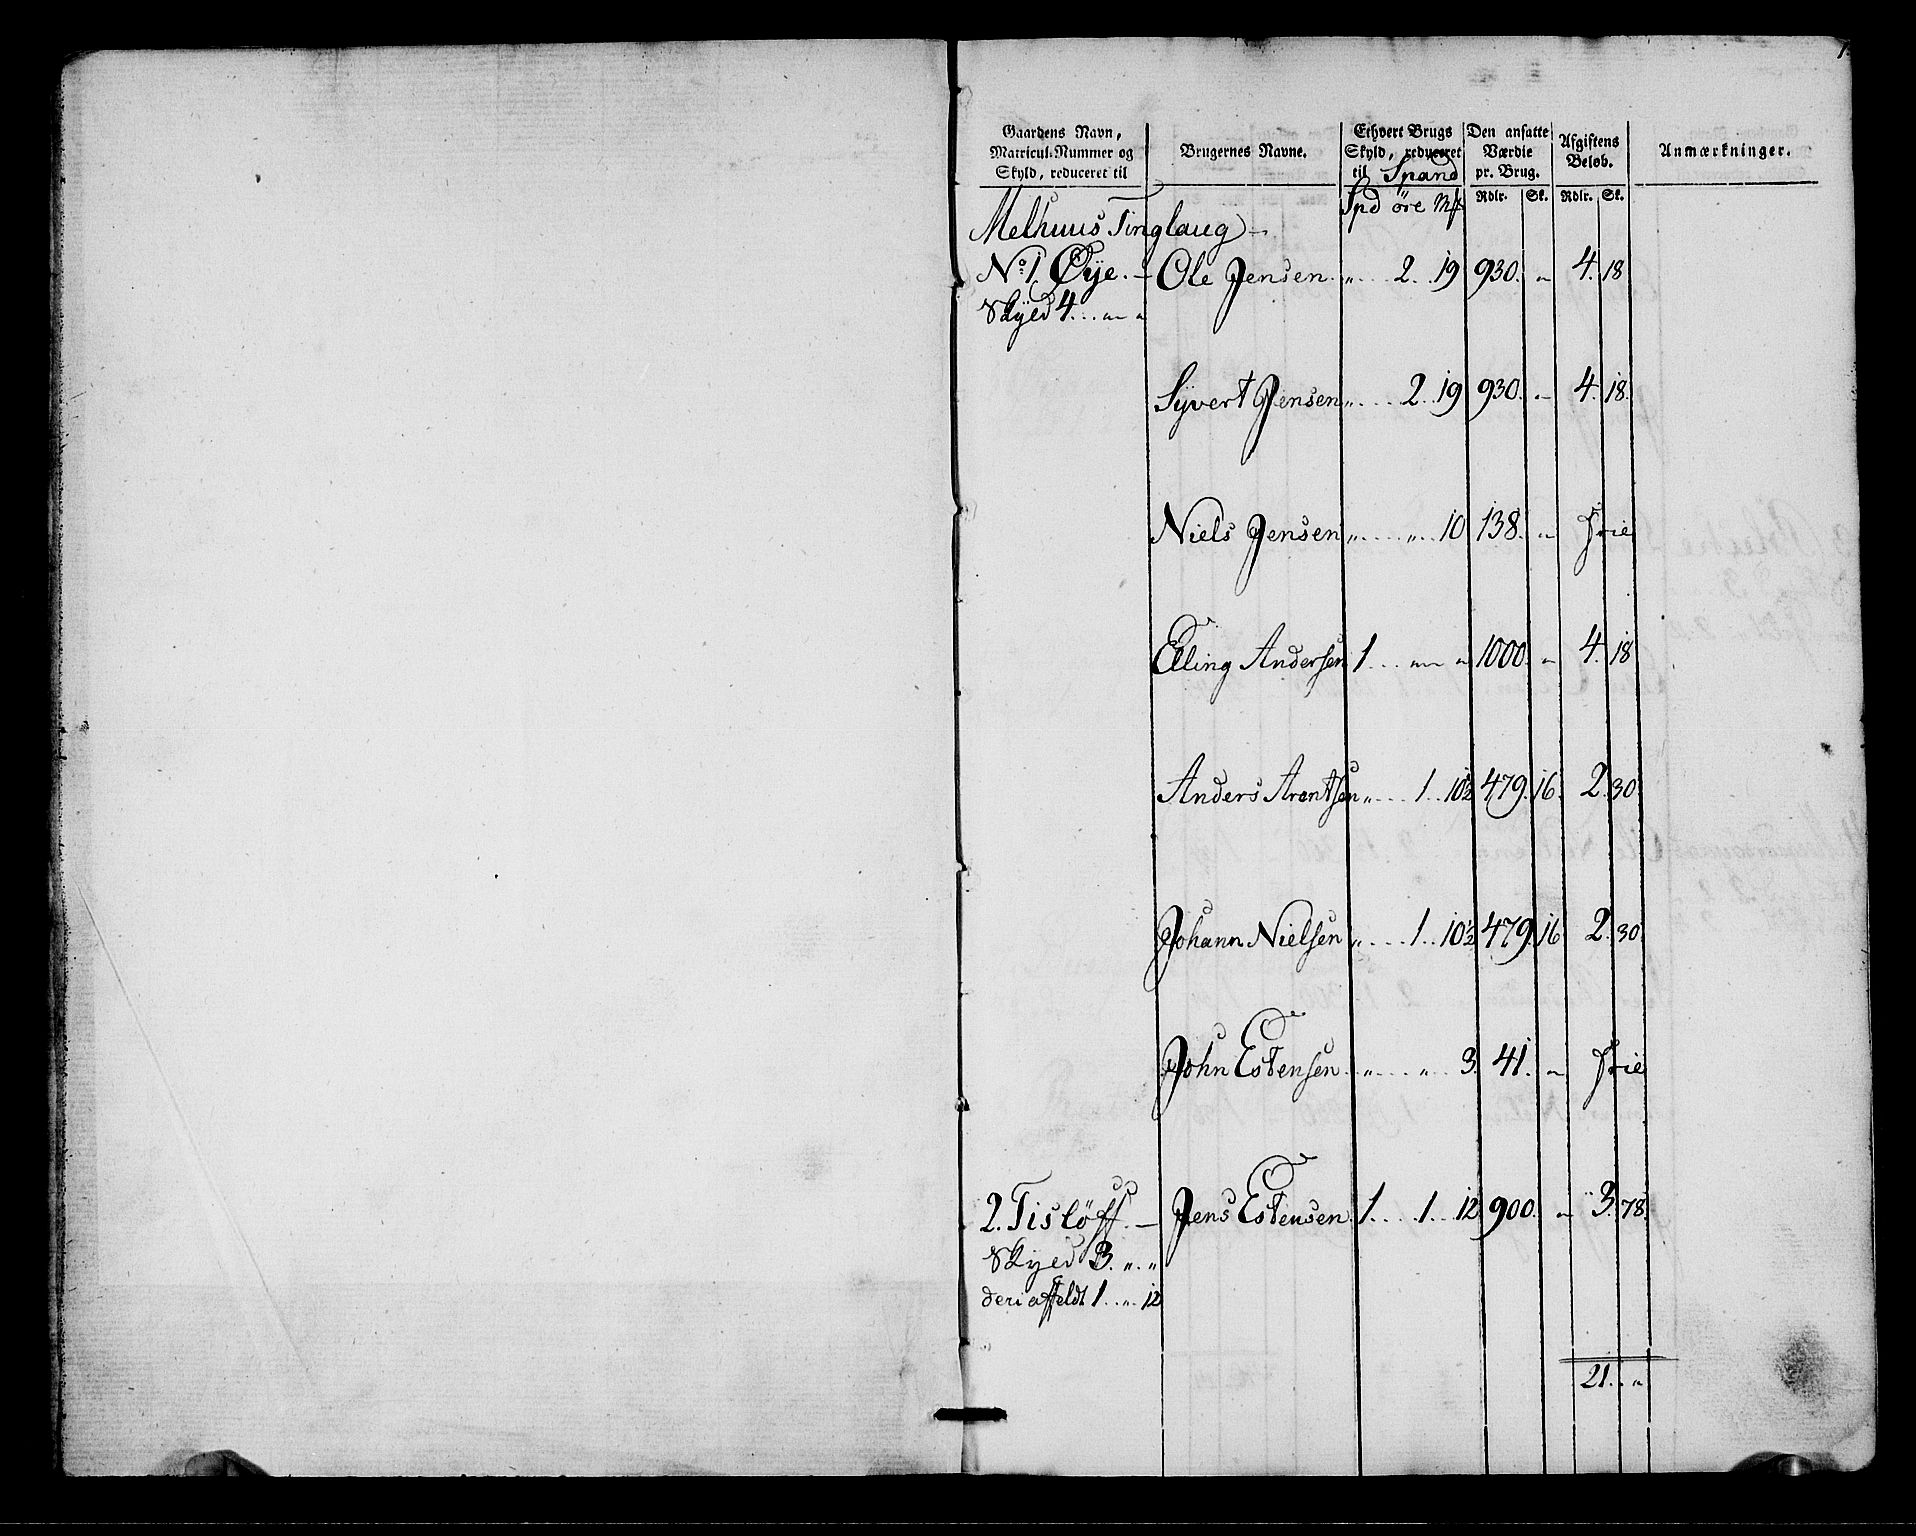 1
Gaardens Navn, Matricul-Nummer og Skyld, reduceret til | Brugernes Navne. | Ethvert Brugs Skyld, reduceret til Spand | Den ansatte Værdie pr. Brug. | Afgiftens Beløb. | Anmærkninger.
Spd øre Mk | Rdlr. | Sk. | Rdlr. | Sk.
Melhuus Tinglaug —
No 1 Øye. — Ole Jensen. „ . . . 2 . . 19 930. „ 4. 18
Skyld 4 . . . „ „
Syvert Jensen „ . . . . 2 . . 19 930. „ 4. 18.
Niels Jensen „ . . . . „ . . 10 138. „ Frie
Elling Andersen 1 . . . „ „ 1000. „ 4. 18
Anders Arentsen „ . . . . 1 . . 10½ 479. 16. 2. 30.
Johann Nielsen „ . . . . 1 . . 10½ 479. 16 2. 30.
John Estensen „ . . . . „ . . 3. 41. „ Frie
2. Tislöff. — Jens Estensen 1 . . . . 1 . . 12 900. „ 3. 78.
Skyld 3. „ . „
deri affeldt 1 . . „ . . 12
21 . . „